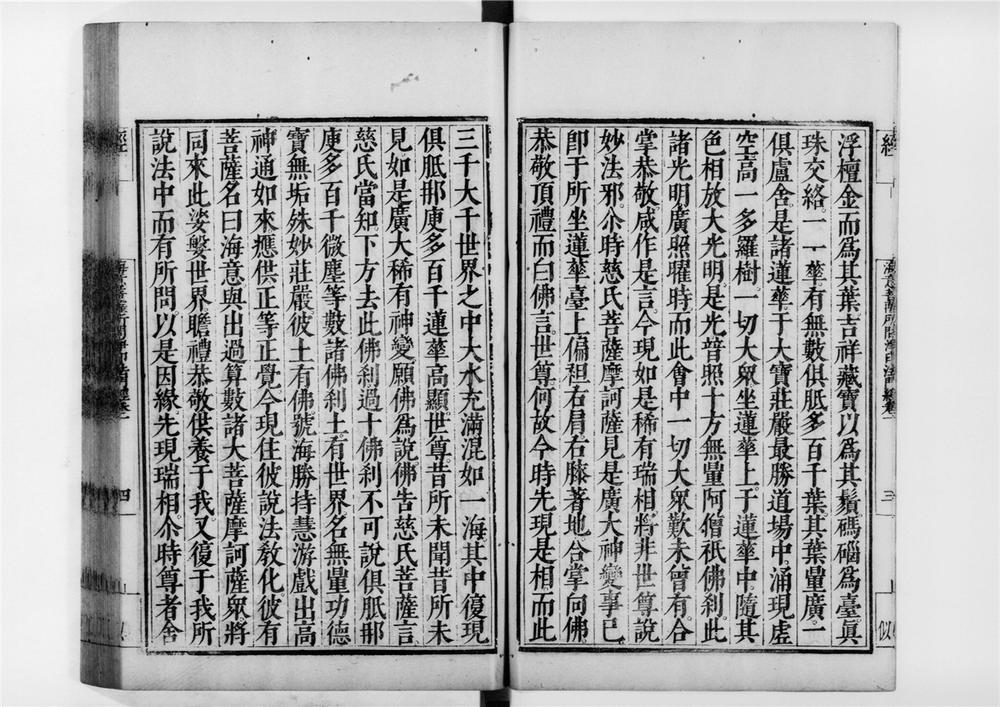 浮檀金而爲其葉吉祥藏寶以爲其鬚碼碯爲臺。眞
珠交絡一一華有無數俱胝多百千葉其葉量廣。一
俱盧舍是諸蓮華于大寶莊嚴最勝道場中。涌現虛
空高一多羅樹。一切大衆坐蓮華上。于蓮華中。隨其
色相放大光明。是光普照十方無量阿僧祇佛刹。此
諸光明廣照曜時。而此會中一切大衆歎未曾有。合
掌恭敬咸作是言。今現如是稀有瑞相。將非世尊說
妙法邪。尒時慈氏菩薩摩訶薩見是廣大神變事已
卽于所坐蓮華臺上偏袒右肩右膝著地。合掌向佛
恭敬頂禮而白佛言。世尊何故今時先現是相。而此
三千大千世界之中大水充滿混如一海其中復現
俱胝那庾多百千蓮華高顯。世尊昔所未聞昔所未
見如是廣大稀有神變願佛爲說佛吿慈氏菩薩言
慈氏當知下方去此佛刹過十佛刹不可說俱胝那
庾多百千微塵等數諸佛刹土。有世界名無量功德
寶無垢殊妙莊嚴。彼土有佛號海勝持慧游戲出高
神通如來應供正等正覺今現住彼說法敎化彼有
菩薩名曰海意與出過算數諸大菩薩摩訶薩衆。將
同來此娑婆世界瞻禮恭敬供養于我。又復于我所
說法中而有所問。以是因緣先現瑞相。尒時尊者舍
經
三
經
四